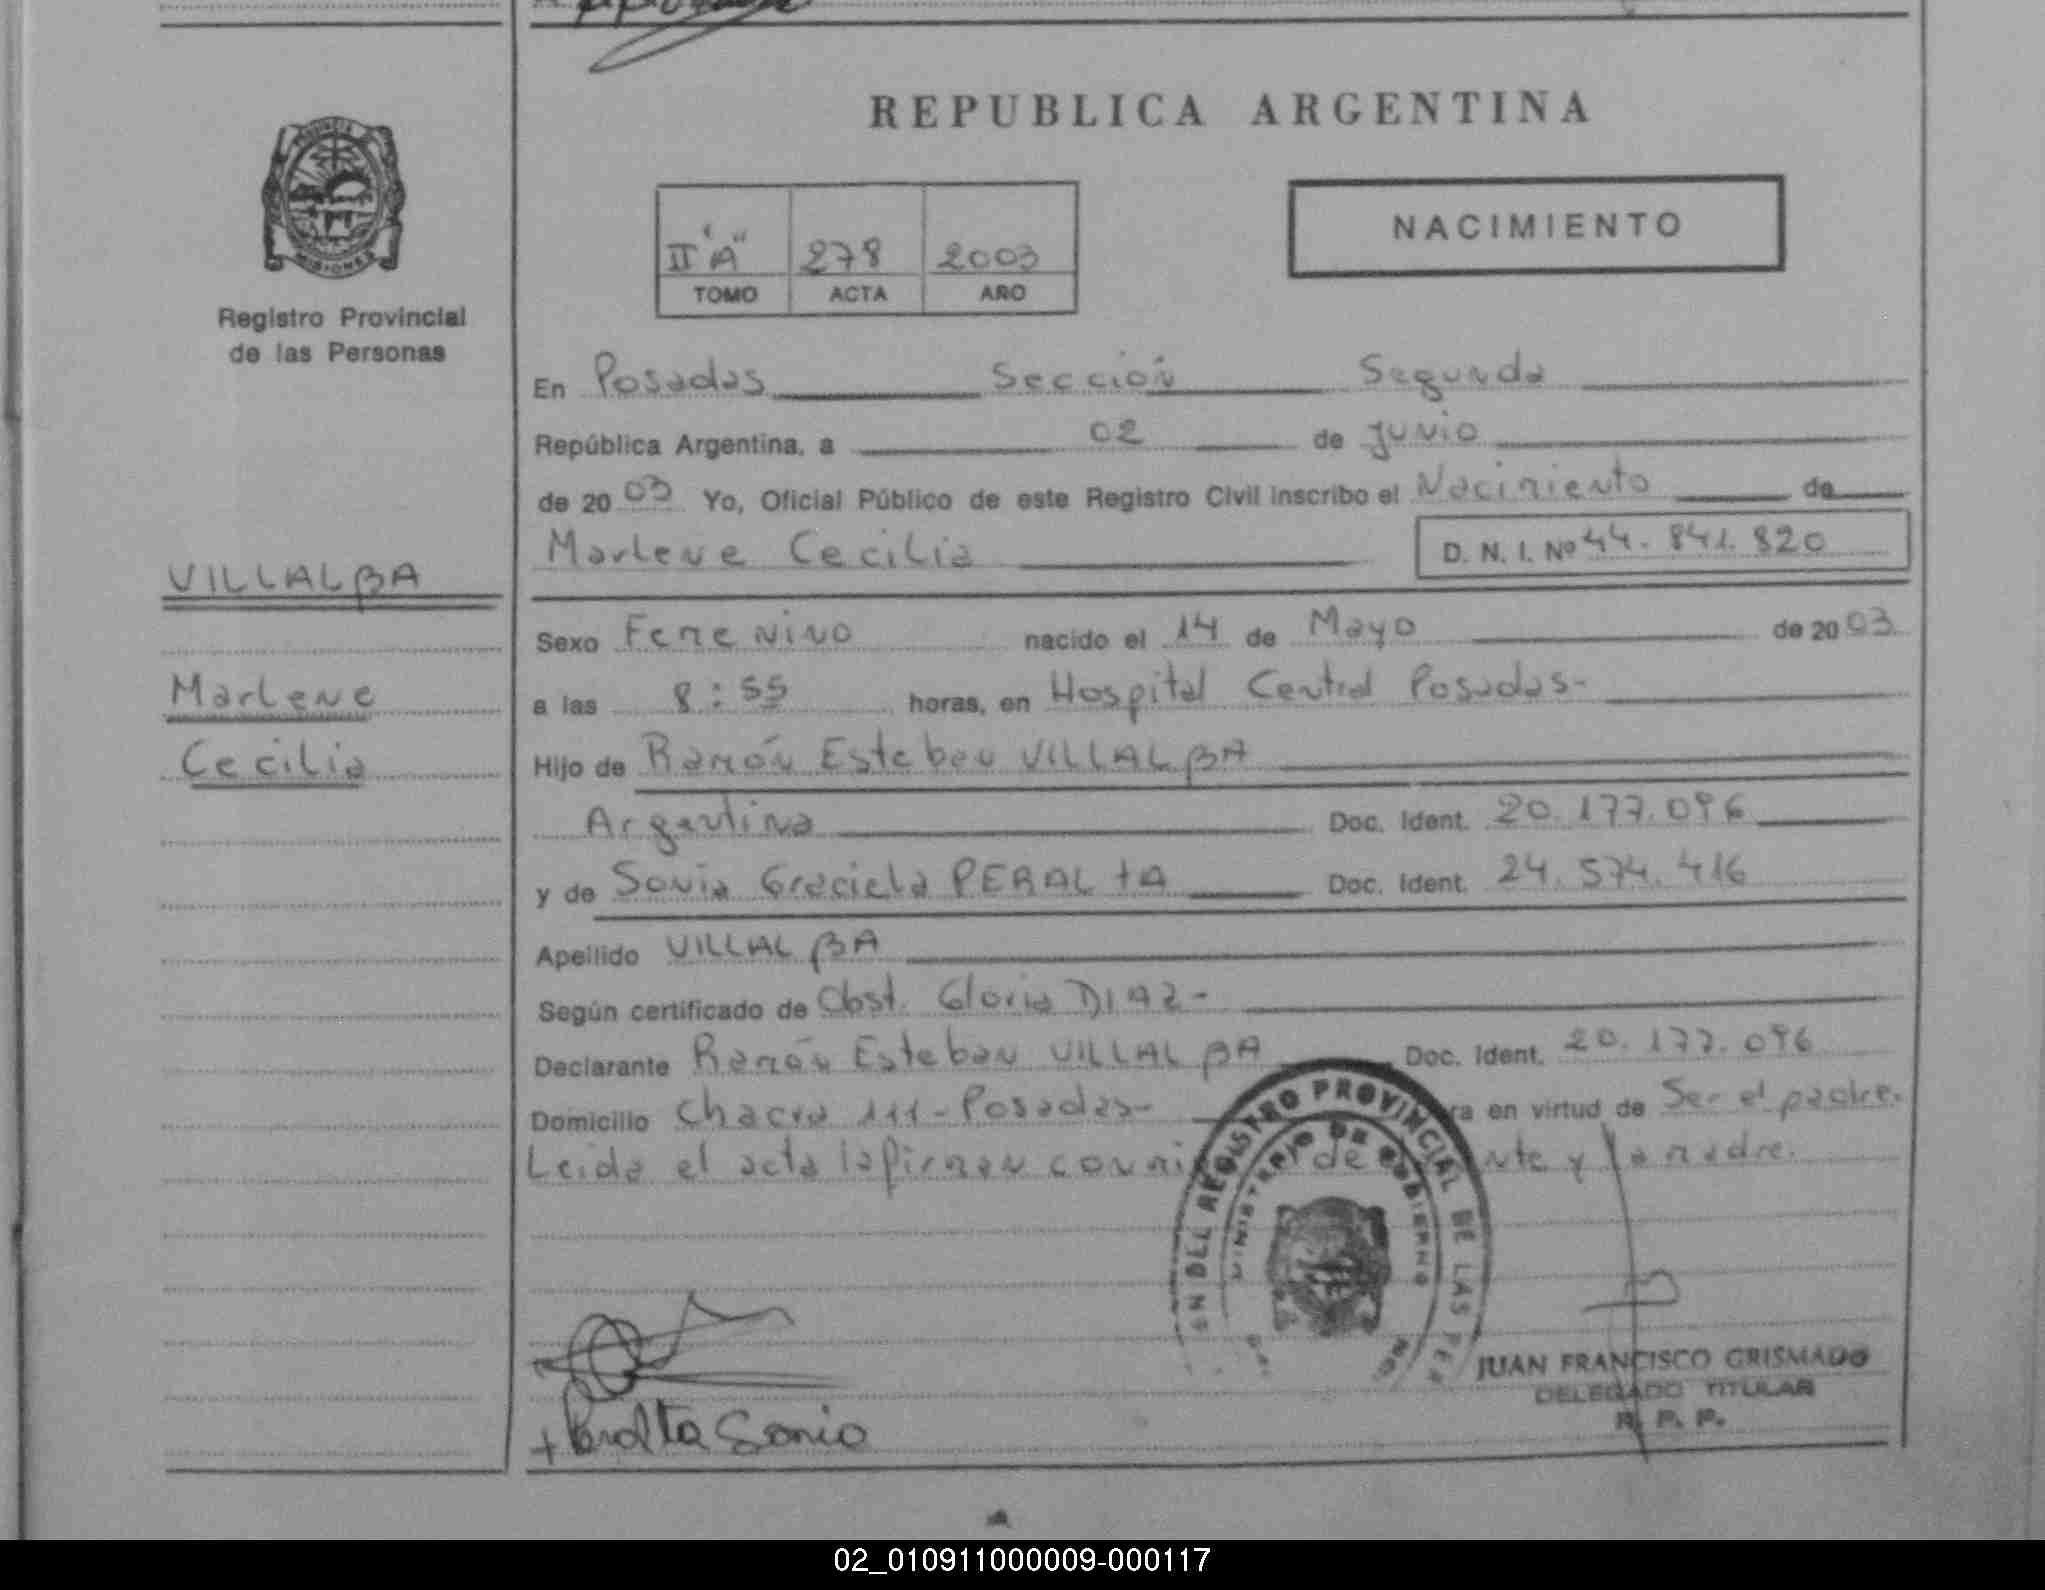 REPUBLICA ARGENTINA
PROVINCIA DE
MISIONES
Registro Provincial
de las Personas
NACIMIENTO
II "A" 278 2003
TOMO ACTA AÑO
En Posadas Sección Segunda
República Argentina, a 02 de Junio
de 2003 Yo, Oficial Público de este Registro Civil inscribo el Nacimiento de
Marlene Cecilia D. N. I. Nº 44.841.820
VILLALBA
Marlene
Cecilia
Sexo Femenino nacido el 14 de Mayo de 2003
a las 8:55 horas, en Hospital Central Posadas-
Hijo de Ramón Esteban VILLALBA
Argentina Doc. Ident. 20.177.096
y de Sonia Graciela PERALTA Doc. Ident. 24.574.416
Apellido VILLALBA
Según certificado de Obst. Gloria DIAZ-
Declarante Ramón Esteban VILLALBA Doc. Ident. 20.177.096
Domicilio Chacra 111-Posadas- ra en virtud de Ser el padre.
Leida el acta la firman conmi de nte y la madre.
ON DEL REGISTRO PROVINCIAL DE LAS PER
MINISTERIO DE GOBIERNO
+ Peralta Sonia
JUAN FRANCISCO GRISMADO
DELEGADO TITULAR
R. P. P.
02_010911000009-000117